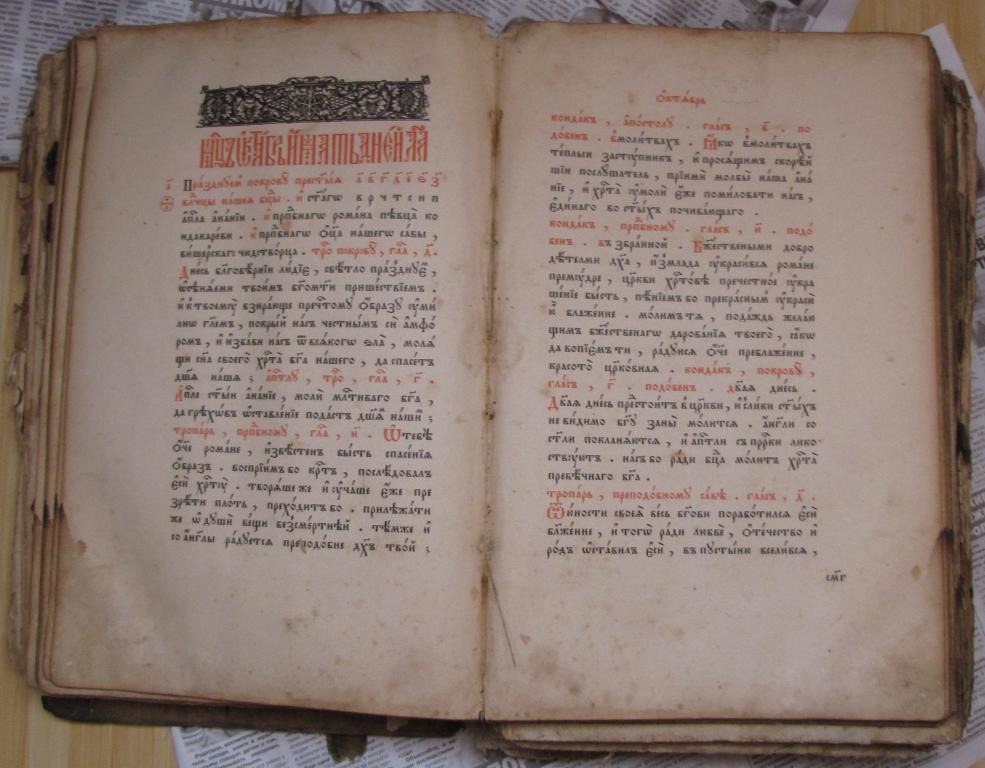 Праздꙋем покровꙋ престыѧ
влⷣчцы нашеѧ бцы . и ст҃агѡ
ап҃ла ананїи . и прпⷣбнагѡ романа пѣвца ко
индакареви . и прпⷣбнагѡ ѻц҃а нашегѡ савы ,
вишерскаго чюдотворца . тро покровꙋ , гла , д҃ .
Днесь благовѣрнїи людїе , свѣтло празднꙋем ,
ѡсѣнѧеми твоимъ бг҃омт҃и пришествїемъ .
и к твоемꙋ взирающе пречтⷭомꙋ ѻбразꙋ ꙋми
лнѡ гл҃ем , покрый насъ честнымъ си амфо
ромъ , и избави насъ ѿ всѧкогѡ ѕла , молѧ
щи сн҃а своего хрⷭта бг҃а нашего , да спасетъ
дш҃а наша ; апⷭтлꙋ , тро , гла , г҃ .
Апⷭле ст҃ый ананїе , моли млⷭтиваго бг҃а ,
да грѣхѡвъ ѡставленїе подастъ дш҃амъ нашимъ ;
тропарь , прпⷣбномꙋ , гла , и҃ . Ѡ тебѣ
ѻч҃е романе , извѣстенъ бысть спасенїѧ
ѻбразъ . воспрїимъ бо крⷭтъ , послѣдовалъ
еси хрⷭтꙋ . творѧше же и ꙋчаше еже пре
зрѣти плоть , преходитъ бо . прилѣжати
же ѡ дꙋши вещи безсмертнѣй . тѣмже и
со аг҃глы радꙋетсѧ преподобне дх҃ъ твой ;
Ѻктѧбрь
кондакъ , апостолꙋ . гласъ , в҃ . по
добенъ . в молитвахъ . Ꙗкѡ в молитвахъ
теплый застꙋпникъ , и просѧщимъ скорѣй
шїи послꙋшатель , прїими молбы наша ана
нїе , и хрⷭта ꙋмоли еже помиловати насъ ,
единаго во ст҃ыхъ почивающаго .
кондакъ , прпⷣбномꙋ . гласъ , и҃ . подо
бенъ . възбранной . Бжⷭествеными добро
дѣтелми дх҃а , измлада ꙋкрасивсѧ романе
премꙋдре , црⷦви хрⷭтовѣ пречестное ꙋкра
шенїе бысть , пѣнїемъ бо прекраснымъ ꙋкраси
ю блаженне . молимъ тѧ , подаждь желаю
щимъ бжⷭественагѡ дарованїѧ твоего , ꙗкѡ
да вопїемъ ти , радꙋисѧ ѻч҃е преблаженне ,
красото црⷦовнаѧ . кондакъ , покровꙋ ,
гласъ , г҃ . подобенъ . дв҃аѧ днесь .
Дв҃аѧ днесь прⷣестоитъ в цр҃кви , и с лики ст҃ыхъ
невидимо бг҃ꙋ за ны молитсѧ . аг҃гли со
ст҃ли покланѧютсѧ , и апⷭтли съ прⷪрки лико
ствꙋютъ . насъ бо ради бц҃а молитъ хрⷭта
превѣчнаго бг҃а .
тропарь , преподобномꙋ савѣ . гласъ , д҃ .
Ѿ юности своеѧ весь бг҃ови поработилсѧ еси
блженне , и того ради любве , ѻтечество и
родъ ѡставилъ еси , въ пꙋстыню вселивсѧ ,